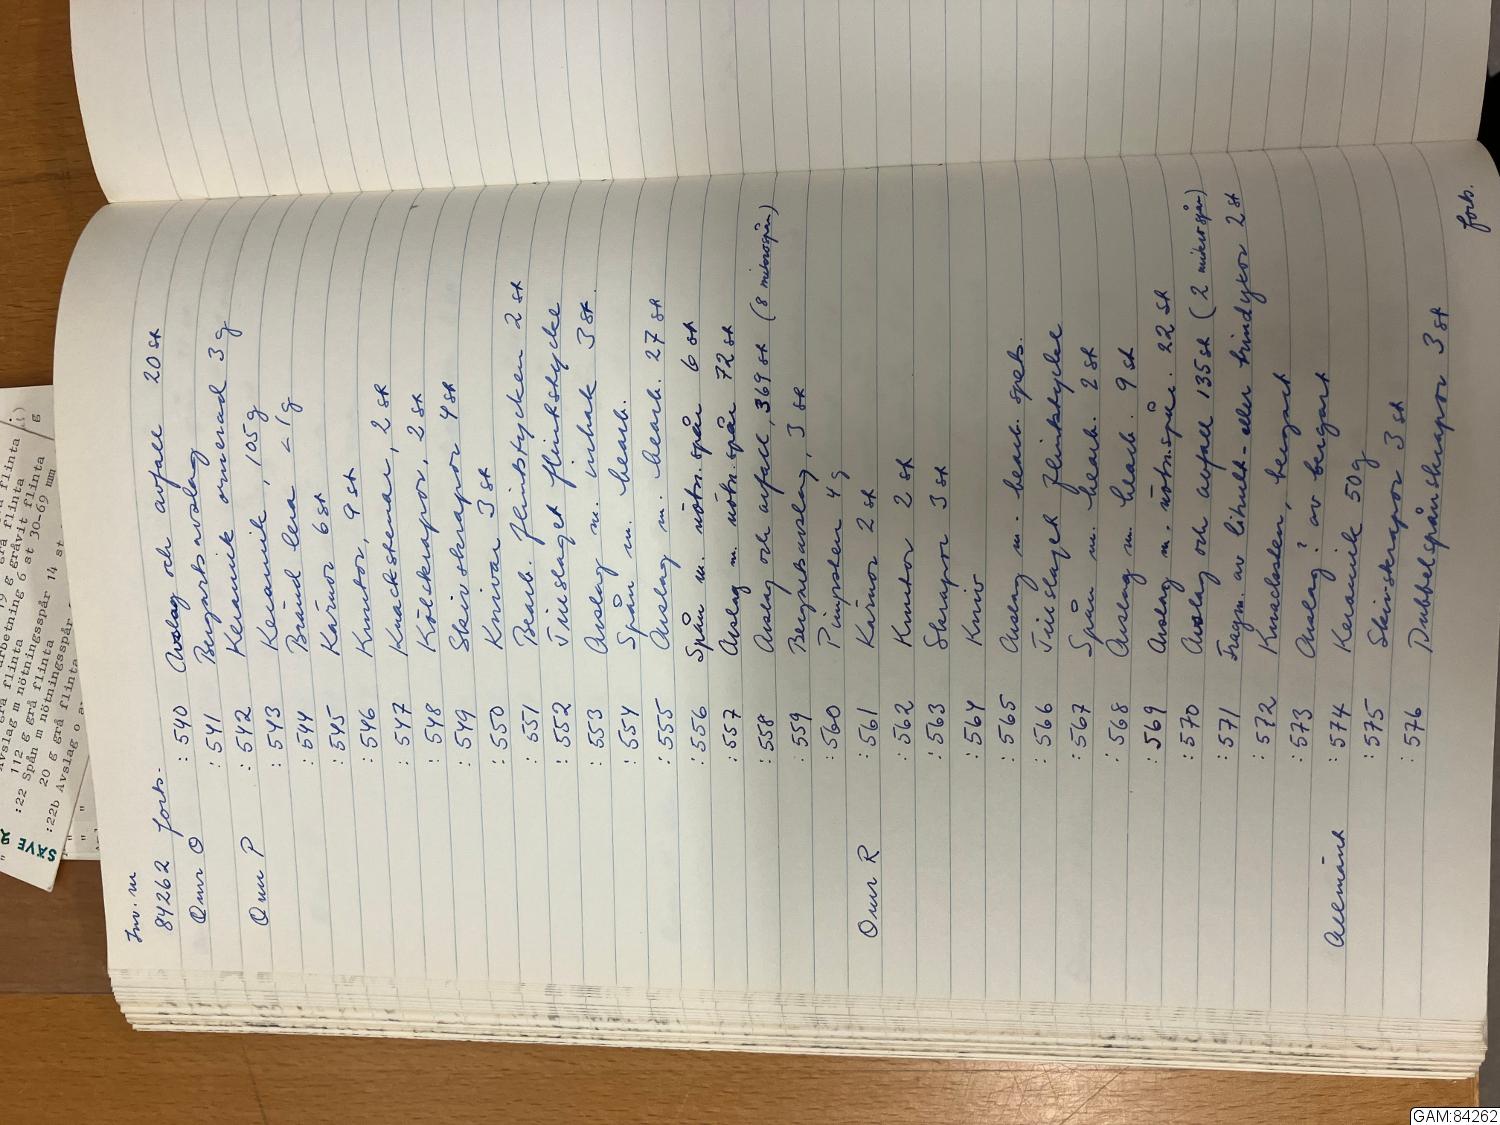 Inv. nr
84262 forts. :540 Avslag och avfall 20 st
Omr O :541 Bergartsavslag
:542 Keramik ornerad 3 g
Omr P :543 Keramik, 105 g
:544 Bränd lera <1 g
:545 Kärnor 6 st
:546 Knutor, 9 st
:547 Knackstenar, 2 st
:548 Kölskrapor, 2 st
:549 Skivskrapor 4 st
:550 Knivar 3 st
:551 Bearb. flintstycken 2 st
:552 Tillslaget flintstycke
:553 Avslag m. inhak 3 st.
:554 Spån m. bearb.
:555 Avslag m. bearb. 27 st
:556 Spån m. nötn.spår 6 st
:557 Avslag m. nötn.spår 72 st
:558 Avslag och avfall, 369 st (8 mikrospån)
:559 Bergartsavslag, 3 st
:560 Pimpsten 4 g
Omr R :561 Kärnor 2 st
:562 Knutor 2 st
:563 Skrapor 3 st
:564 Kniv
:565 Avslag m. bearb. spets.
:566 Tillslaget flintstycke
:567 Spån m. bearb. 2 st
:568 Avslag m. bearb. 9 st
:569 Avslag m. nötn.spår. 22 st
:570 Avslag och avfall 135 st (2 mikrospån)
:571 Fragm. av lihult- eller trindyxor 2 st
:572 Knacksten, bergart
:573 Avslag? av bergart
Allmänt :574 Keramik 50 g
:575 Skivskrapor 3 st
:576 Dubbelspånskrapor 3 st
forts.
flinta
g grå flinta
Avslag grå flinta 19 g gråvit flinta
112 g bearbetning 6 st 30-69 mm
:22 Spån m nötningsspår 14 st
20 g grå flinta
:22b Avslag o
SÄVE
GAM:84262